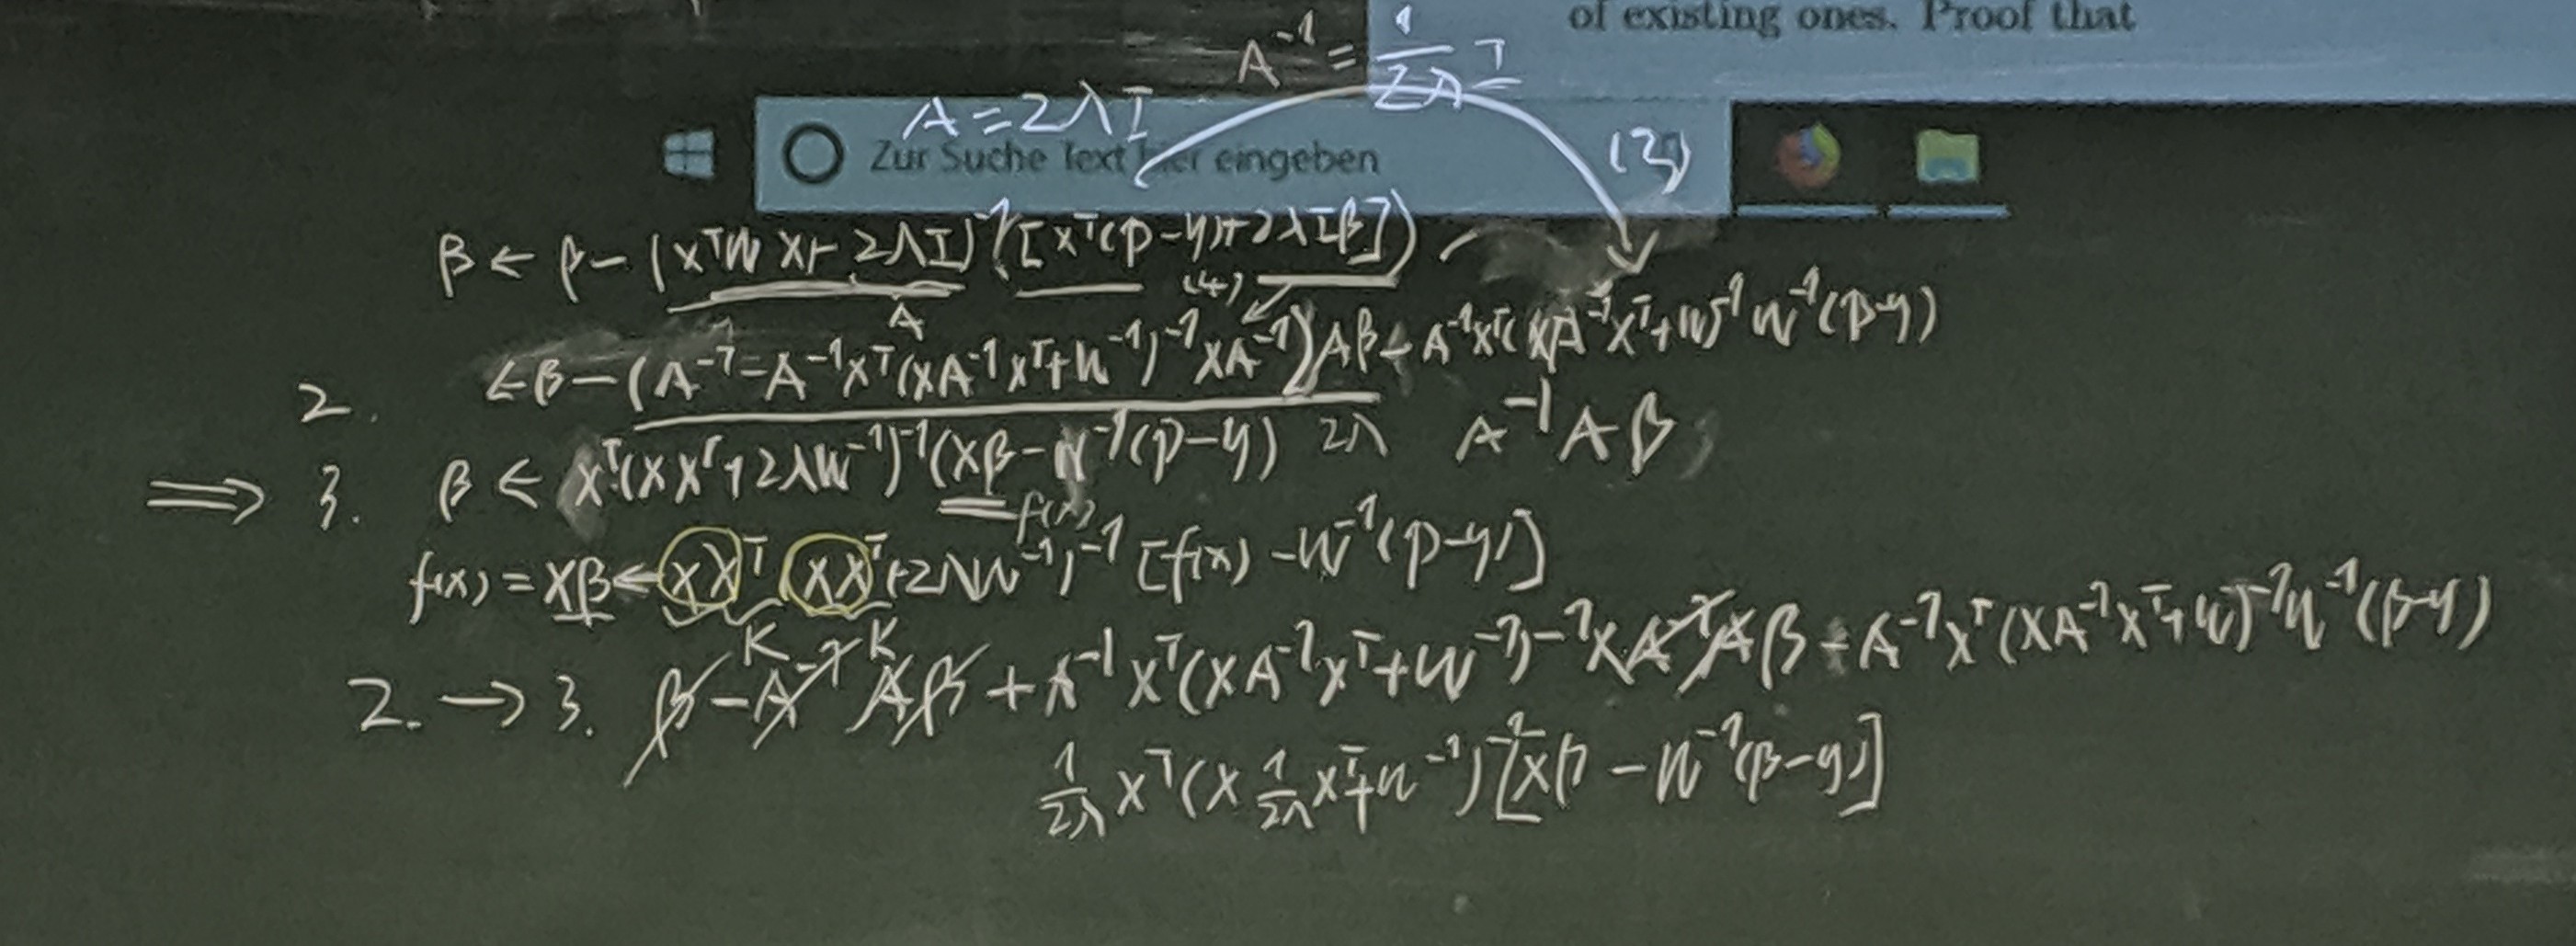 of existing ones. Proof that
A⁻¹ = 1/2λ I
A = 2λI
Zur Suche Text hier eingeben
(3)
β ← β − (XᵀW X + 2λI)⁻¹([Xᵀ(p−y)+2λIβ])
A
(4)
2. ← β − (A⁻¹ − A⁻¹Xᵀ(XA⁻¹Xᵀ+W⁻¹)⁻¹XA⁻¹)Aβ − A⁻¹Xᵀ(XA⁻¹Xᵀ+W)⁻¹W⁻¹(p−y)
⟹ 3. β ← Xᵀ(XXᵀ+2λW⁻¹)⁻¹(Xβ−W⁻¹(p−y) 2λ A⁻¹Aβ
f(x)
f(x) = Xβ ← XXᵀ(XXᵀ+2λW⁻¹)⁻¹[f(x) − W⁻¹(p−y)]
K K
2. → 3. β − A⁻¹Aβ + A⁻¹Xᵀ(XA⁻¹Xᵀ+W⁻¹)⁻¹XA⁻¹Aβ − A⁻¹Xᵀ(XA⁻¹Xᵀ+W)⁻¹W⁻¹(p−y)
1/2λ Xᵀ(X 1/2λ Xᵀ+W⁻¹)⁻¹[Xβ − W⁻¹(p−y)]